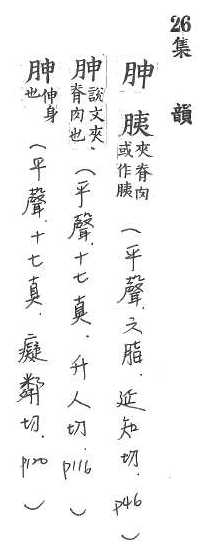 26集 韻
胂 胰 夾脊肉或作胰(平聲.之脂.延知切.p46)
胂 說文夾脊肉也.(平聲.十七真.升人切.p116)
胂 伸身也(平聲.十七真.癡鄰切.p120)